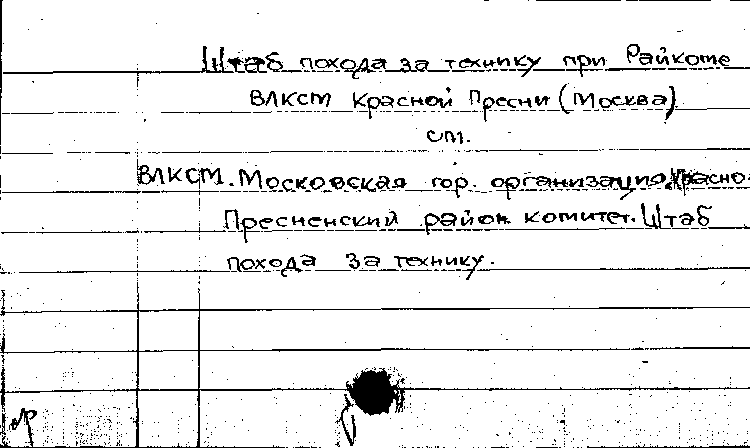 Штаб похода за технику при Райкоме
ВЛКСМ Красной Пресни (Москва)
см.
ВЛКСМ. Московская гор. организация. Красно-
Пресненский район. комитет. Штаб
похода за технику.